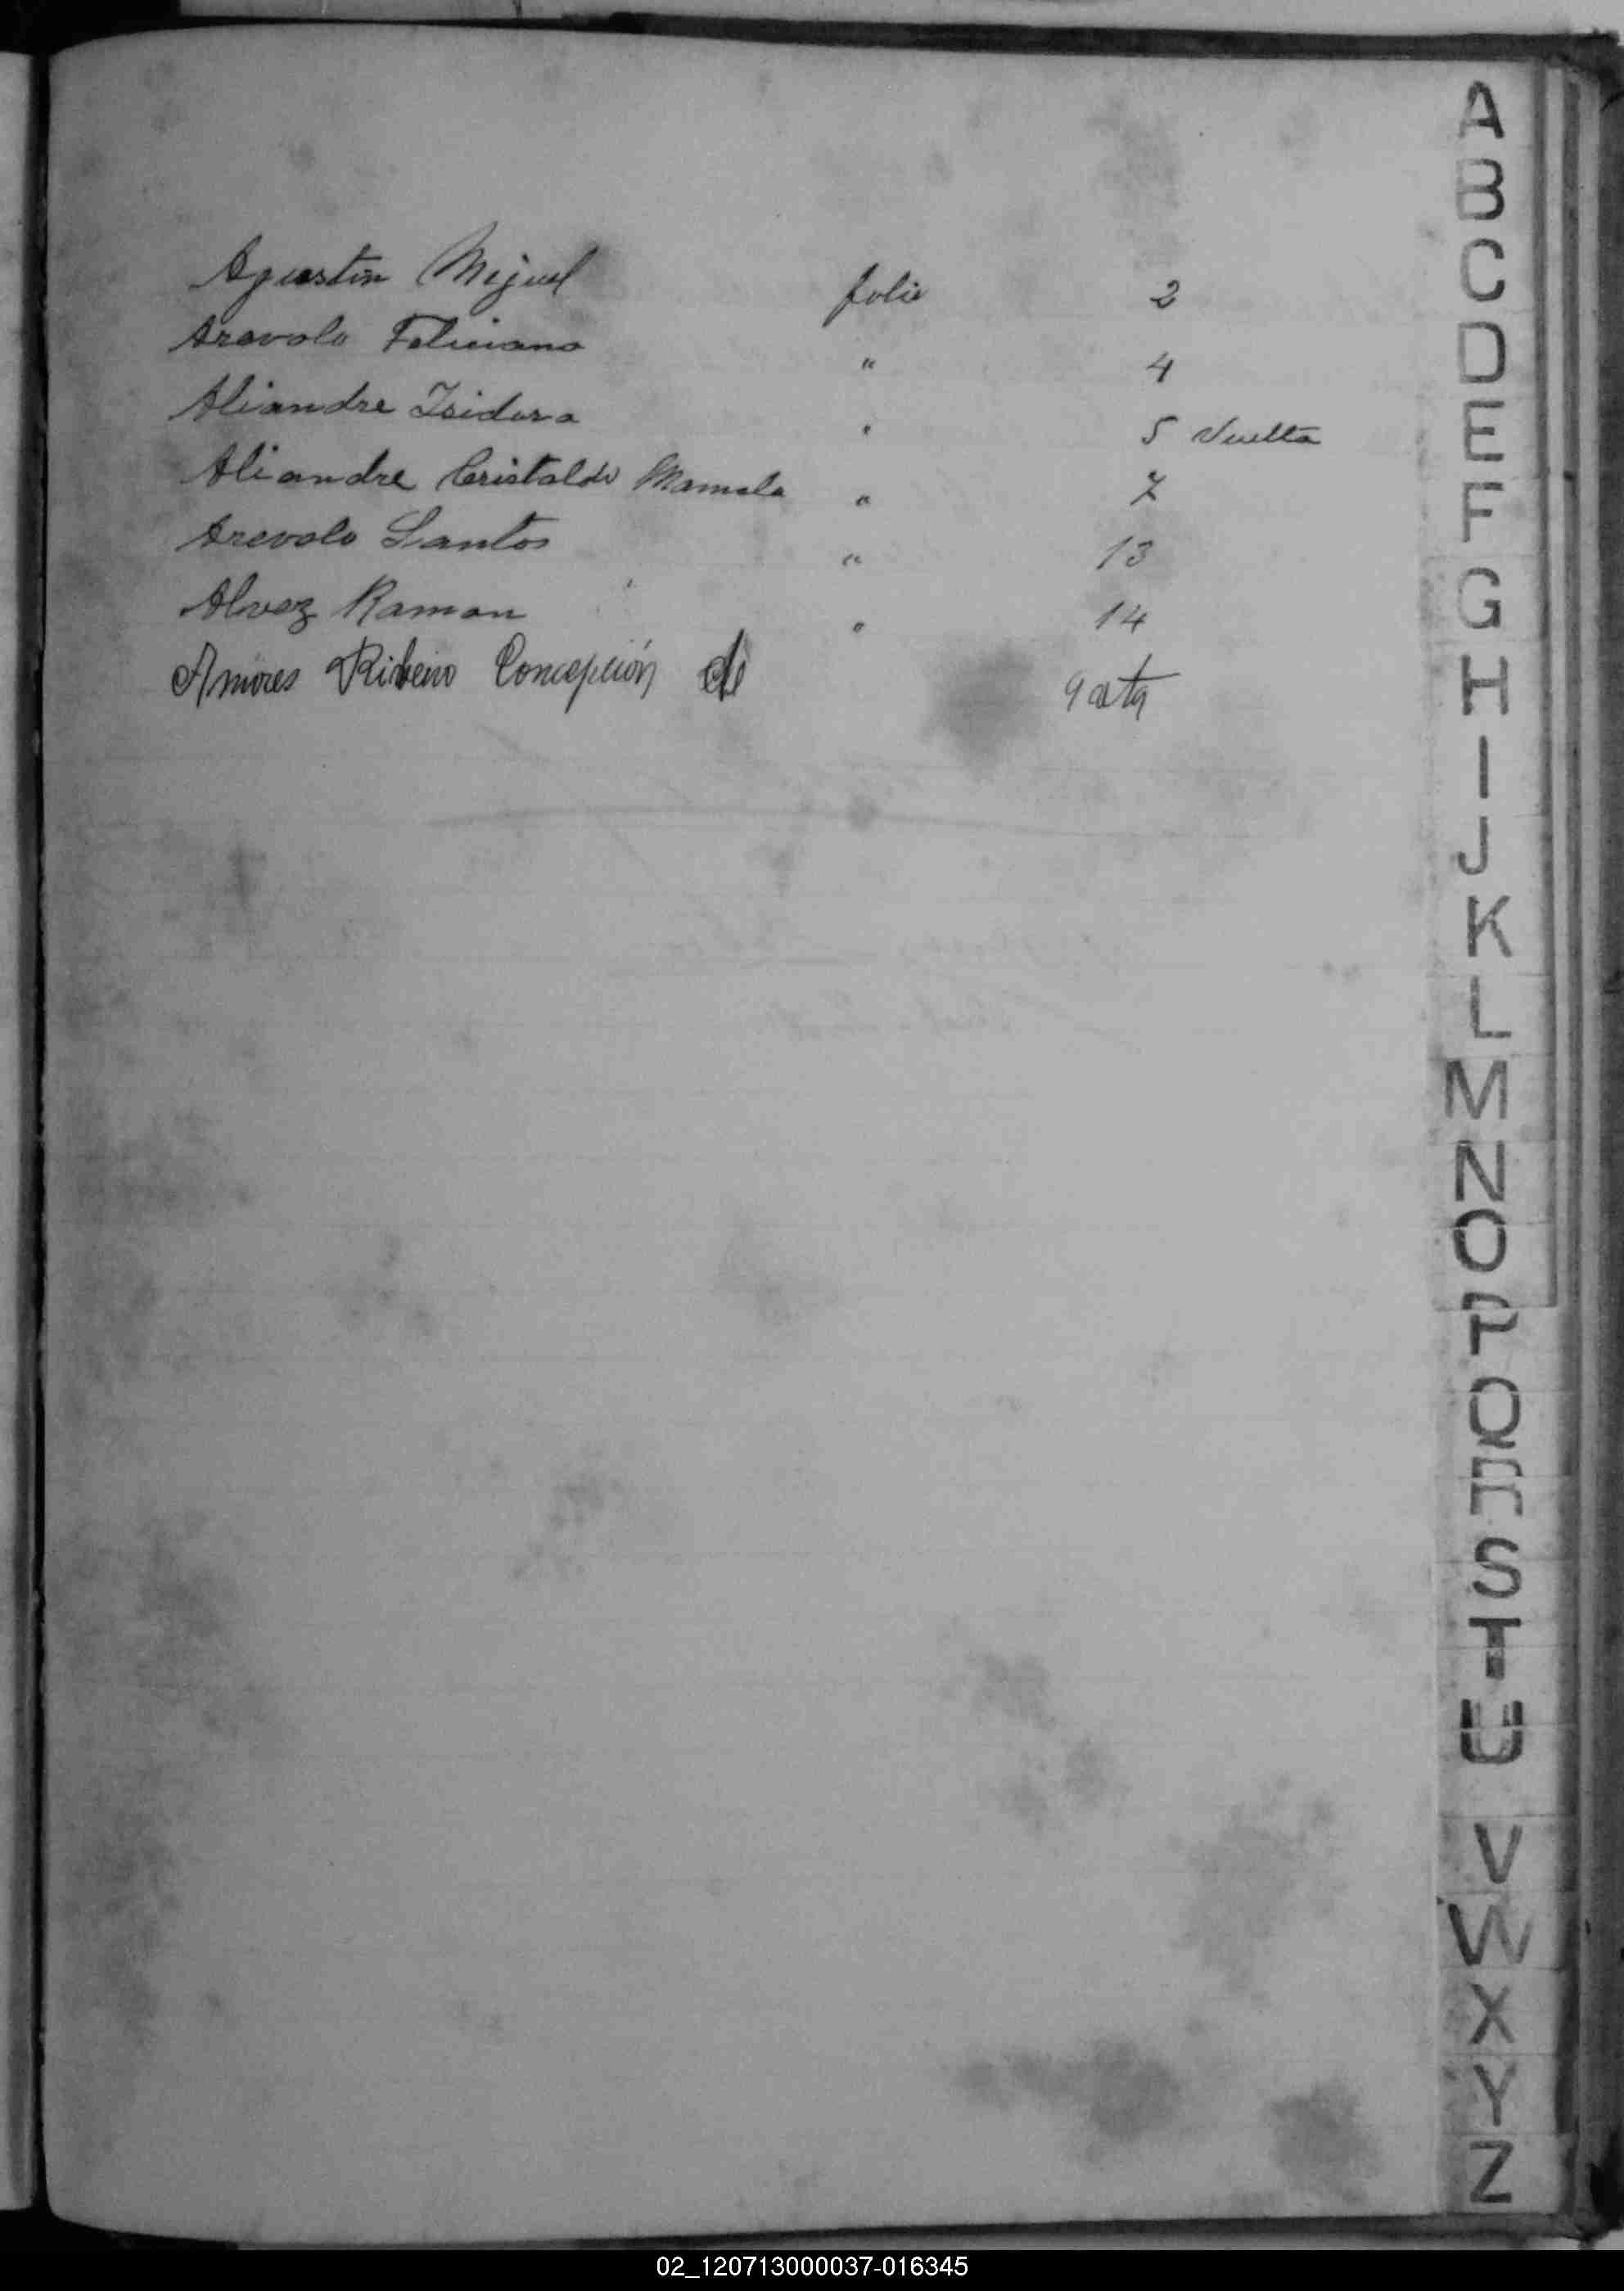 Agustin Miguel folio 2
Arevalo Feliciano " 4
Aliandre Isidora " 5 Vuelta
Aliandre Cristaldo Mamela " 7
Arevalo Santos " 13
Alvez Ramon " 14
Amores Ribeiro Concepción de 9 acta
A
B
C
D
E
F
G
H
I
J
K
L
M
N
O
P
Q
R
S
T
U
V
W
X
Y
Z
02_120713000037-016345